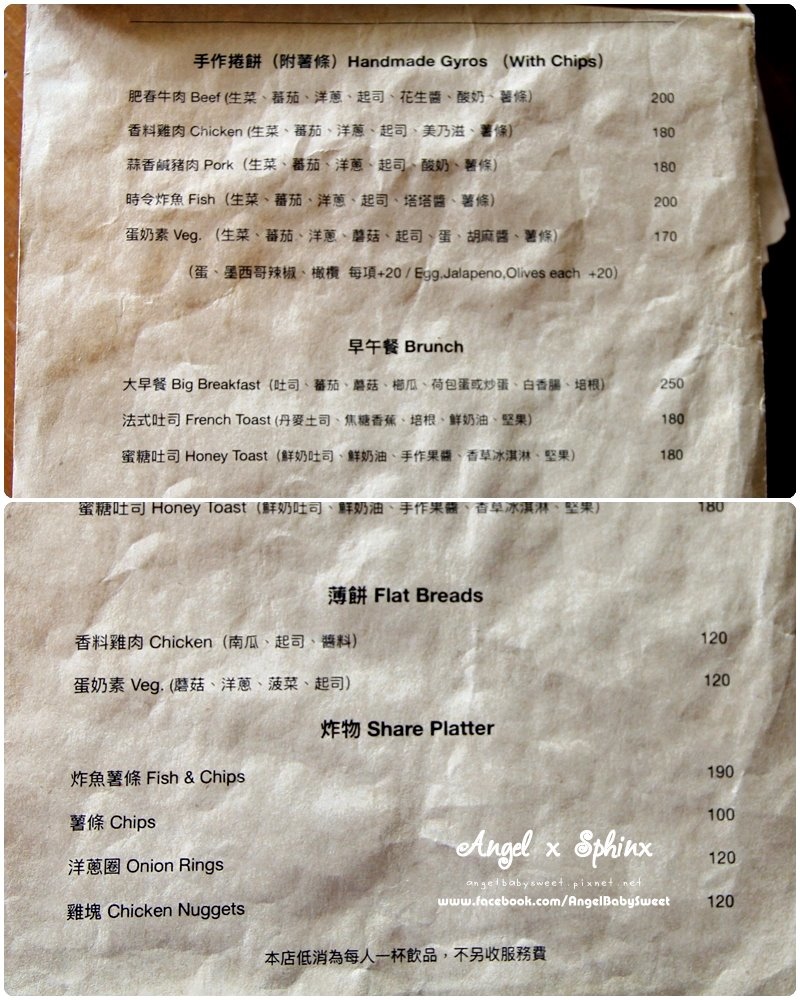 手作捲餅（附薯條）Handmade Gyros （With Chips）
肥春牛肉 Beef (生菜、蕃茄、洋蔥、起司、花生醬、酸奶、薯條） 200
香料雞肉 Chicken (生菜、蕃茄、洋蔥、起司、美乃滋、薯條） 180
蒜香鹹豬肉 Pork（生菜、蕃茄、洋蔥、起司、酸奶、薯條） 180
時令炸魚 Fish（生菜、蕃茄、洋蔥、起司、塔塔醬、薯條） 200
蛋奶素 Veg.（生菜、蕃茄、洋蔥、蘑菇、起司、蛋、胡麻醬、薯條） 170
（蛋、墨西哥辣椒、橄欖 每項+20 / Egg,Jalapeno,Olives each +20）
早午餐 Brunch
大早餐 Big Breakfast（吐司、蕃茄、蘑菇、櫛瓜、荷包蛋或炒蛋、白香腸、培根） 250
法式吐司 French Toast (丹麥土司、焦糖香蕉、培根、鮮奶油、堅果） 180
蜜糖吐司 Honey Toast（鮮奶吐司、鮮奶油、手作果醬、香草冰淇淋、堅果） 180
蜜糖吐司 Honey Toast（鮮奶吐司、鮮奶油、手作果醬、香草冰淇淋、堅果） 180
薄餅 Flat Breads
香料雞肉 Chicken（南瓜、起司、醬料） 120
蛋奶素 Veg. (蘑菇、洋蔥、菠菜、起司） 120
炸物 Share Platter
炸魚薯條 Fish & Chips 190
薯條 Chips 100
洋蔥圈 Onion Rings 120
雞塊 Chicken Nuggets 120
Angel x Sphinx
angelbabysweet.pixnet.net
www.facebook.com/AngelBabySweet
本店低消為每人一杯飲品，不另收服務費